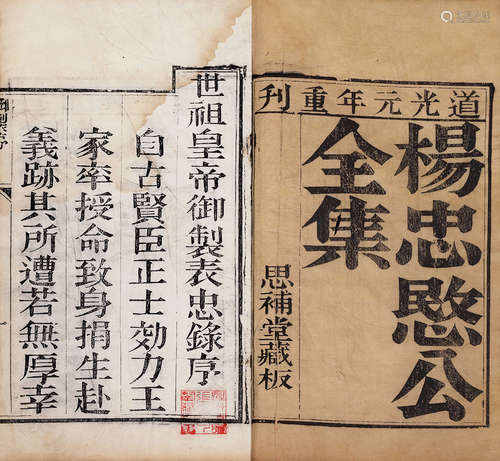 道光元年重刊
楊忠愍公
全集
思補堂藏板
世祖皇帝御製表忠錄序
自古賢臣正士効力王
家率授命致身捐生赴
義跡其所遭若無厚幸